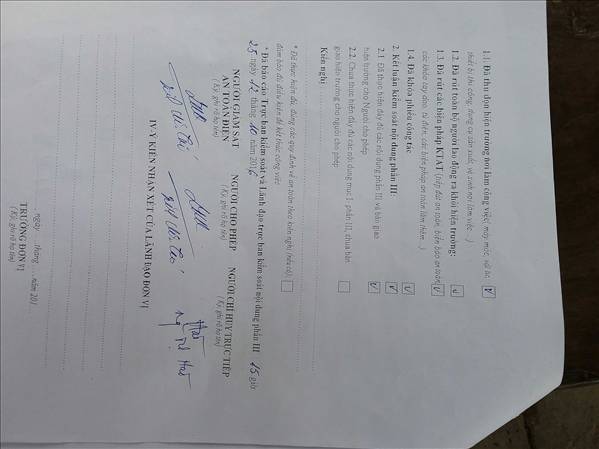 1.1. Đã thu dọn hiện trường nơi làm công việc( máy móc, vật tư,
thiết bị thi công, dụng cụ sản xuất, vệ sinh nơi làm việc ...)
1.2. Đã rút toàn bộ người lao động ra khỏi hiện trường:
1.3. Đã rút các biện pháp KTAT (tiếp đất an toàn, biển báo an toàn,
các khóa tay dao, tủ điện, các biện pháp an toàn làm thêm...)
1.4. Đã khóa phiếu công tác
2. Kết luận kiểm soát nội dung phần III:
2.1 Đã thực hiện đầy đủ các nội dung phần III và bàn giao
hiện trường cho Người cho phép
2.2. Chưa thực hiện đầy đủ các nội dung mục 1, phần III, chưa bàn
giao hiện trường cho người cho phép
Kiến nghị
* Đã thực hiện đủ, đúng các quy định về an toàn theo kiến nghị (nếu có);
đảm bảo đủ điều kiện để kết thúc công việc
* Đã báo cáo Trực ban kiểm soát và Lãnh đạo trực ban kiểm soát nội dung phần III 15 giờ
25 ngày 12 tháng 10 năm 2016
NGƯỜI GIÁM SÁT AN TOÀN ĐIỆN
(Ký, ghi rõ họ tên)
NGƯỜI CHO PHÉP
(Ký, ghi rõ họ tên)
NGƯỜI CHỈ HUY TRỰC TIẾP
(Ký, ghi rõ họ tên)
IV-Ý KIẾN NHẬN XÉT CỦA LÃNH ĐẠO ĐƠN VỊ
ngày tháng năm 201
TRƯỞNG ĐƠN VỊ
(Ký, ghi rõ họ tên)